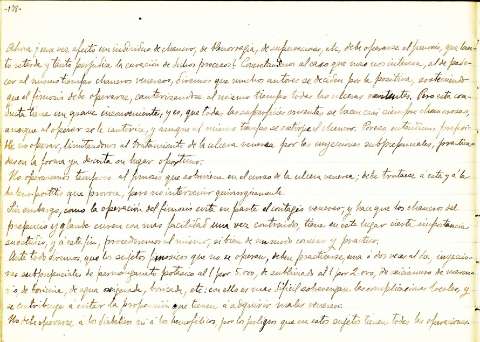 -138-
Ahora ¿una vez afecto un individuo de chancro, de blenorragia, de supuraciones, etc, debe operarse el fimosis, que tanto
retarda y tanto perjudica la curación de dichos procesos? Concretandonos al caso que mas nos interesa, al de pade-
cer al mismo tiempo chancro venereo, diremos que muchos autores se deciden por la positiva, sosteniendo
que el fimosis debe operarse, cauterizandose al mismo tiempo todas las ulceras existentes. Pero esta con-
ducta tiene un grave inconveniente, y es, que todas las superficies cruentas se hacen casi siempre chancrosas,
aunque al operar se las cauterice, y aunque al mismo tiempo se extirpe el chancro. Por eso nosotros preferi-
mos no operar, limitandonos al tratamiento de la ulcera venerea por las inyecciones subprepuciales, practica-
das en la forma ya descrita en lugar oportuno.
No operaremos tampoco el fimosis que sobreviene en el curso de la ulcera venerea; debe tratarse a esta y a la
balanopostitis que provoca, pero no intervenir quirurgicamente.
Sin embargo, como la operación del fimosis evita en parte el contagio venereo, y hace que los chancros del
prepucio y glande curen con mas facilidad una vez contraidos, tiene en este lugar cierta importancia
su estudio, y a este fin, procederemos al mismo, si bien de un modo conciso y practico.
Ante todo diremos, que los sujetos fimosicos que no se operen, deben practicarse, una o dos veces al dia, inyeccio-
nes subprepuciales de permanganato potasico al 1 por 5.000, de sublimado al 1 por 2.000, de
de boricina, de agua oxigenada, borada, etc. con ellas es mas dificil sobrevengan las complicaciones locales, y
se contribuye a evitar la propension que tienen a adquirir males venereos.
No debe operarse a los diabeticos ni a los hemofilicos, por los peligros que en estos sujetos tienen todas las operaciones.